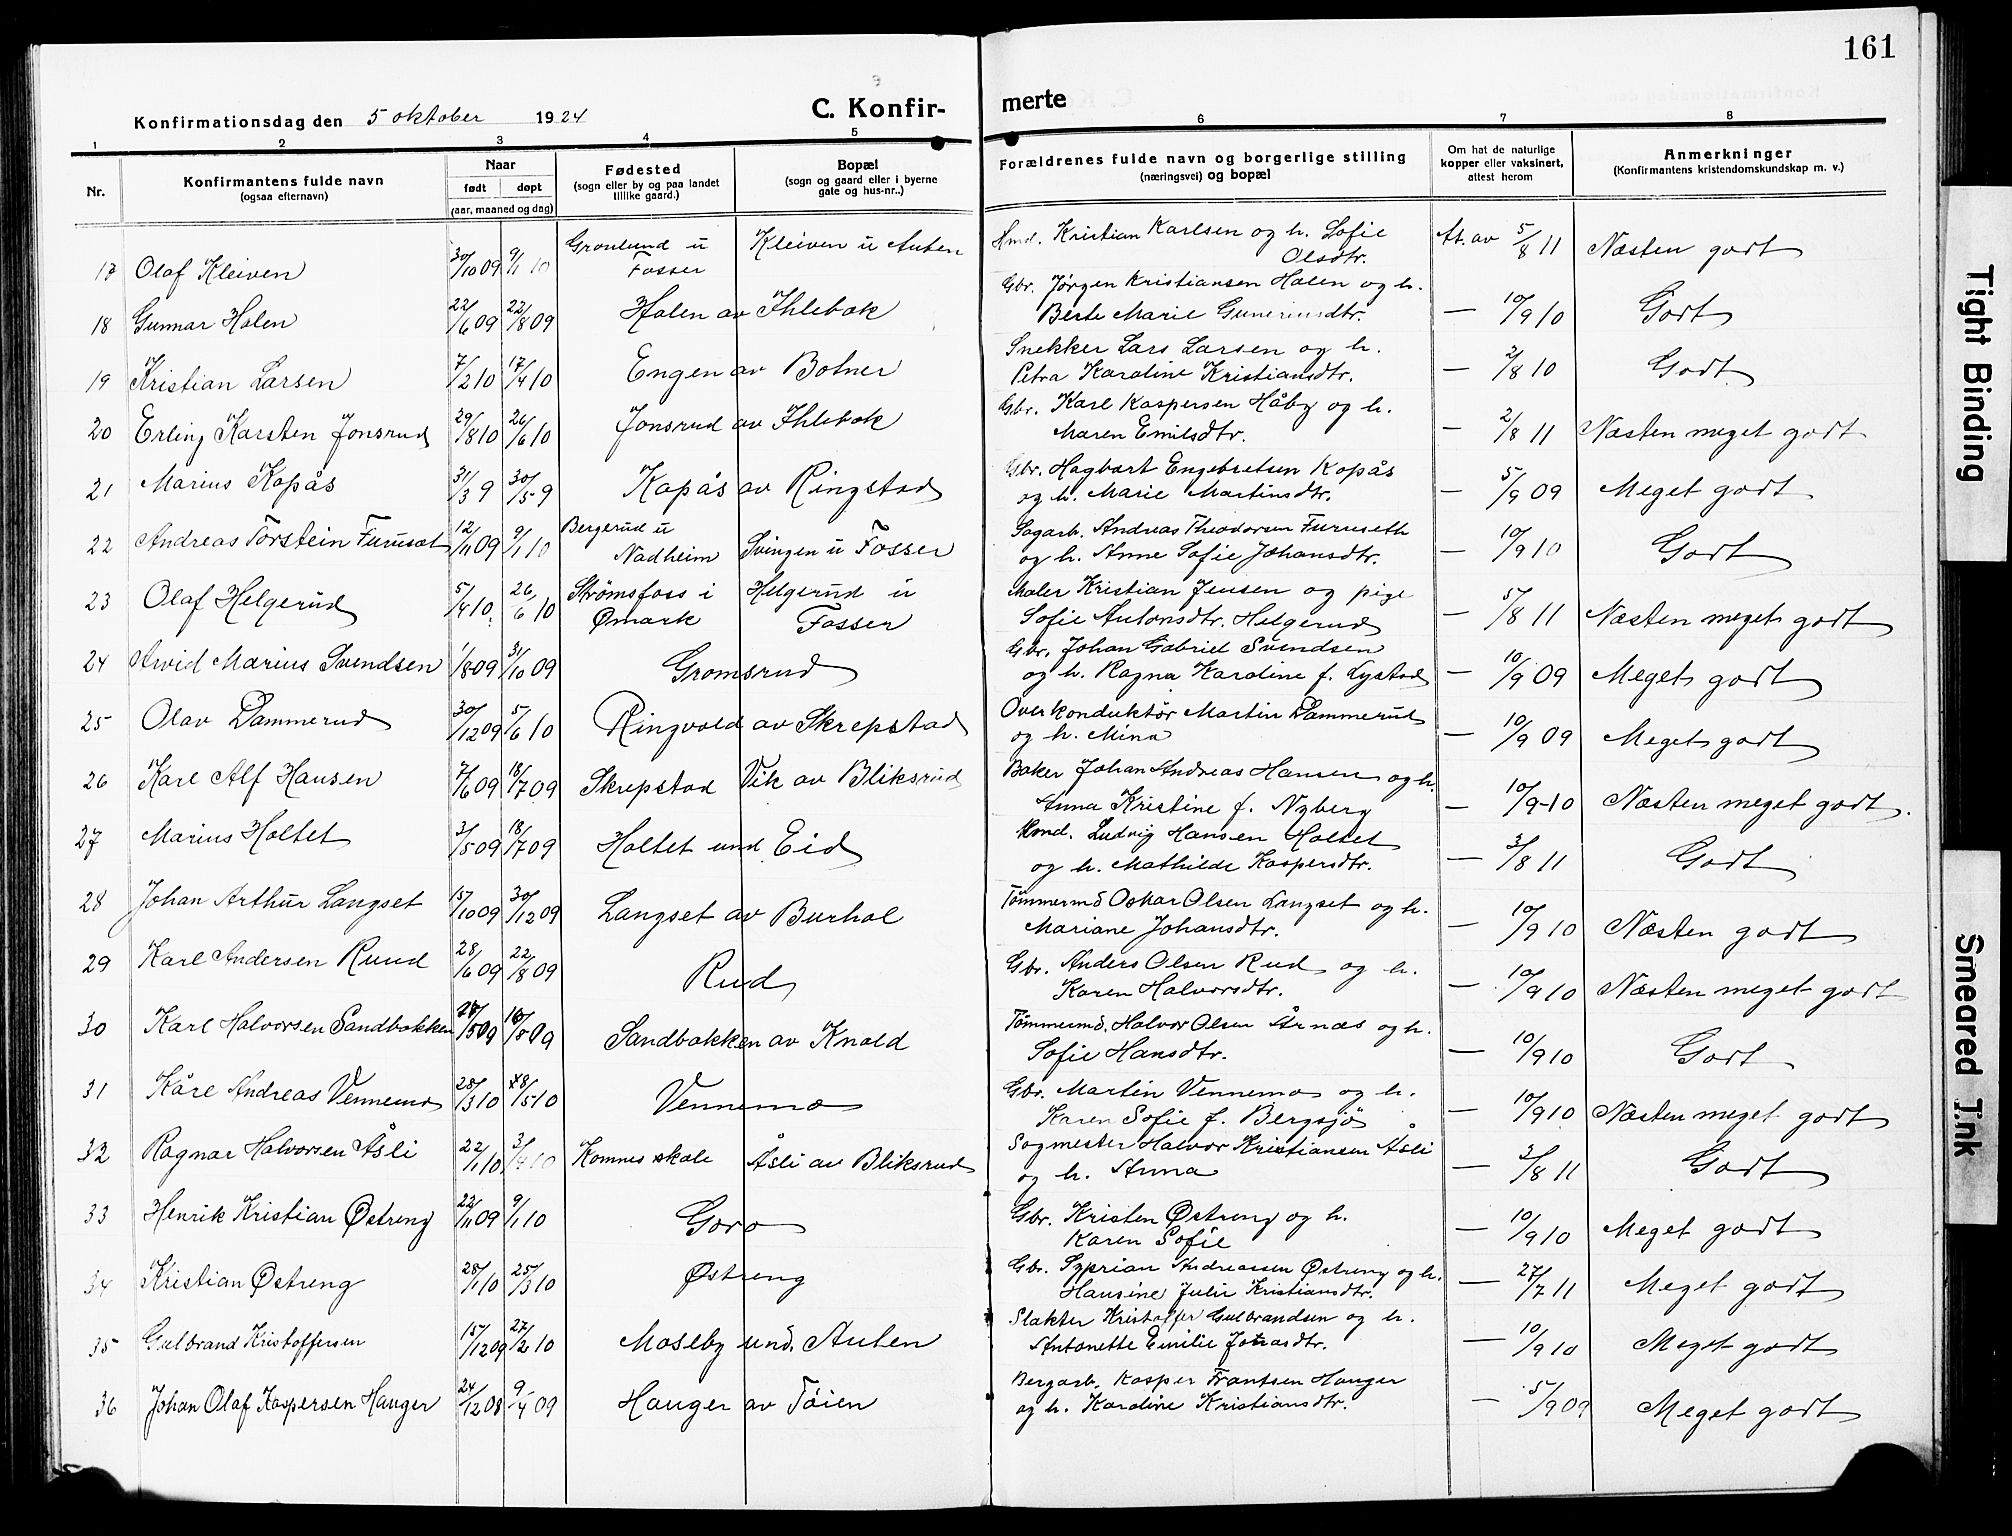 161
Konfirmationsdag den 5 oktober 1924
C. Konfir-
merte
1 2 3 4 5 6 7 8
Nr.
Konfirmantens fulde navn
(ogsaa efternavn)
Naar
født døpt
(aar, maaned og dag)
Fødested
(sogn eller by og paa landet
tillike gaard.)
Bopæl
(sogn og gaard eller i byerne
gate og hus-nr..)
Forældrenes fulde navn og borgerlige stilling
(næringsvei) og bopæl
Om hat de naturlige
kopper eller vaksinert,
attest herom
Anmerkninger
(Konfirmantens kristendomskundskap m. v.)
17 Olaf Kleiven 30/10 09 9/1 10 Gronlund u Fosser Kleiven u Auten Hmd. Kristian Karlsen og h. Sofie
Olsdtr. At. av 5/8 11 Næsten godt
18 Gunnar Holen 22/6 09 22/8 09 Holen av Ihlebæk Gbr. Jørgen Kristiansen Holen og h.
Berte Marie Guneriusdtr. — 10/9 10 Godt
19 Kristian Larsen 7/2 10 17/4 10 Engen av Botner Snekker Lars Larsen og h.
Petra Karoline Kristiansdtr. — 2/8 10 Godt
20 Erling Karsten Jonsrud 29/1 810 26/6 10 Jonsrud av Ihlebæk Gbr. Karl Kaspersen Håby og h.
Maren Emilsdtr. — 2/8 11 Næsten meget godt
21 Marius Kopås 31/3 9 30/5 9 Kopås av Ringstad Gbr. Hagbart Engebretsen Kopås
og h. Marie Martinsdtr. — 5/9 09 Meget godt
22 Andreas Torstein Furuset 12/11 09 9/1 10 Bergerud u Nadheim Svingen u Fosser Sagarb. Andreas Theodorsen Furuseth
og h. Anne Sofie Johansdtr. — 10/9 10 Godt
23 Olaf Helgerud 5/4 10. 26/6 10 Strømsfoss i Ømark Helgerud u Fosser Maler Kristian Jensen og pige
Sofie Antonsdtr. Helgerud — 5/8 11 Næsten meget godt
24 Arvid Marius Svendsen 1/8 09 31/10 09 Gromsrud Gbr. Johan Gabriel Svendsen
og h. Ragna Karoline f. Lystad — 10/9 09 Meget godt
25 Olav Dammerud 30/12 09 5/6 10 Ringvold av Skrepstad Overkonduktør Martin Dammerud
og h. Mina — 10/9 09 Meget godt
26 Karl Alf Hansen 7/6 09 18/7 09 Skrepstad Vik av Bliksrud Baker Johan Andreas Hansen og h.
Anna Kristine f. Nyberg — 10/9 10 Næsten meget godt.
27 Marius Holtet 3/5 09 18/7 09 Holtet und Eid Hmd. Ludvig Hansen Holtet
og h. Mathilde Kaspersdtr. — 3/8 11 Godt
28 Johan Arthur Langset 15/10 09 30/12 09 Langset av Burhol Tømmermd Oskar Olsen Langset og h.
Mariane Johansdtr. — 10/9 10 Næsten godt
29 Karl Andersen Ruud 28/6 09 22/8 09 Rud Gbr. Anders Olsen Rud og h.
Karen Halvorsdtr. — 10/9 10 Næsten meget godt
30 Karl Halvorsen Sandbakken /5 09 /8 09 Sandbakken av Knold Tømmermd. Halvor Olsen Årnæs og h.
Sofie Hansdtr. — 10/9 10 Godt
31 Kåre Andreas Vennemo 28/3 10 /5 10 Vennemo Gbr. Martin Vennemo og h.
Karen Sofie f. Bergsjø — 10/9 10 Næsten meget godt
32 Ragnar Halvorsen Åsli 22/1 10 3/4 10 Komnes skole Åsli av Bliksrud Sagmester Halvor Kristiansen Åsli
og h. Anna — 3/8 11 Godt
33 Henrik Kristian Østreng 22/11 09 9/1 10 Goro Gbr. Kristen Østreng og h.
Karen Sofie — 10/9 10 Meget godt
34 Kristian Østreng 28/1 10 25/3 10 Østreng Gbr. Syprian Andreassen Østreng og h.
Hansine Julie Kristiansdtr. — 27/7 11 Meget godt
35 Gulbrand Kristoffersen 15/12 09 27/2 10 Moseby und. Auten Slakter Kristoffer Gulbrandsen og h.
Antonette Emilie Jonasdtr. — 10/9 10 Meget godt
36 Johan Olaf Kaspersen Hauger 24/12 08 9/4 09 Hauger av Tøien Bergarb. Kasper Frantsen Hauger
og h. Karoline Kristiansdtr. — 5/9 09 Meget godt
Tight Binding
Smeared Ink